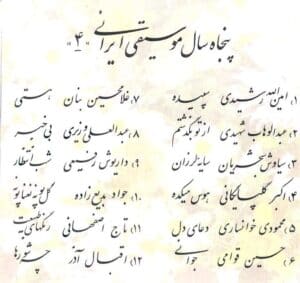 پنجاه سال موسیقی ایرانی "۴"
۱، امین الله رشیدی سپیده
۲، عبدالوهاب شهیدی از تو بگذشتم
۳، سیاوش شجریان سایه لرزان
۴، اکبر گلپایگانی هوس میکده
۵، محمودی خوانساری دعای دل
۶، حسین قوامی جوانی
۷، غلامحسین بنان هستی
۸، عبدالعلی وزیری بی خبر
۹، داریوش رفیعی شب انتظار
۱۰، جواد بدیع زاده گل پونه نعنا پونه
۱۱، تاج اصفهانی رنگهای طبیعت
۱۲، اقبال آذر چه شورها